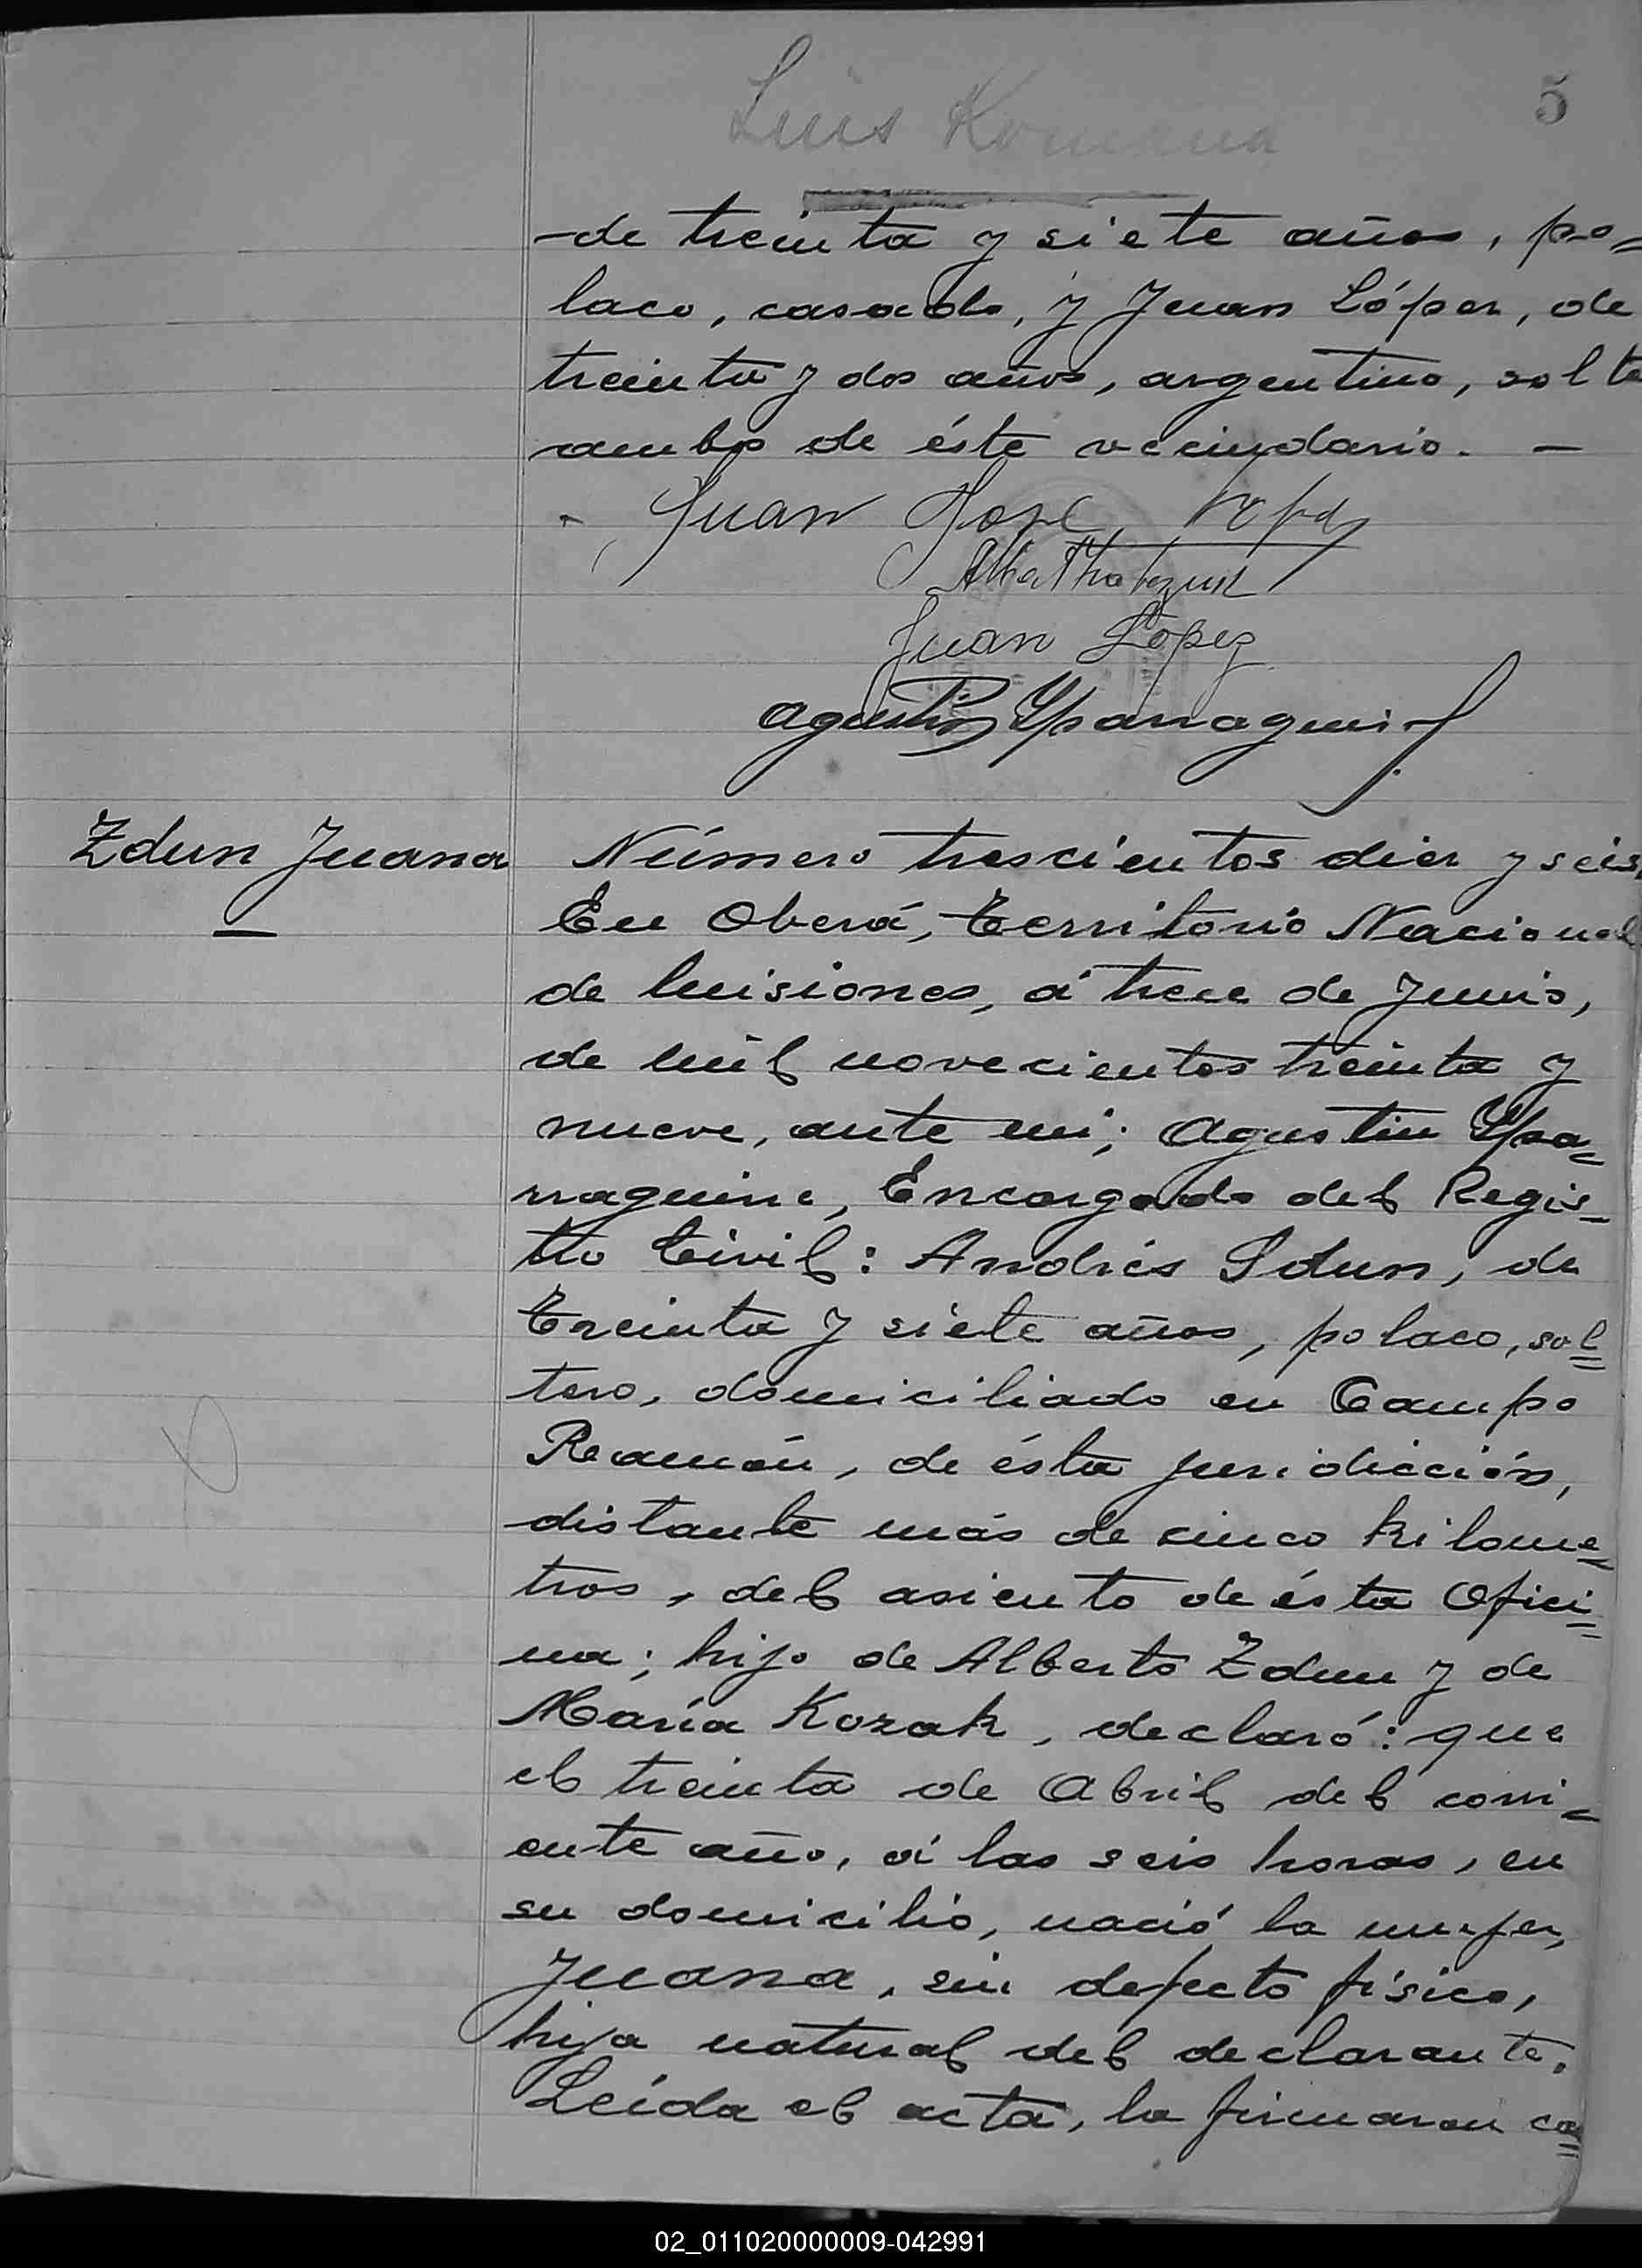 Luis Romana
5
-de treinta y siete años, po=
laco, casado, y Juan López, de
treinta y dos años, argentino, solte
ambos de éste vecindario. —
Juan José
Juan López
Agustín Yparraguirre
Zdun Juana
Número trescientos diez y seis.
En Oberá, Territorio Nacional
de Misiones, á trece de Junio,
de mil novecientos treinta y
nueve, ante mi; Agustin Ypa=
rraguirre, Encargado del Regis-
tro Civil: Andrés Sdun, de
Treinta y siete años, polaco, sol=
tero, domiciliado en Campo
Ramón, de ésta juridicción,
distante más de cinco kilome=
tros, del asiento de ésta Ofici=
na; hijo de Alberto Zdun y de
María Kozak, declaró: que
el treinta de Abril del corri=
ente año, á las seis horas, en
su domicilio, nació la mujer,
Juana, sin defecto físico,
hija natural del declarante.
Leída el acta, la firmaron co=
02_011020000009-042991